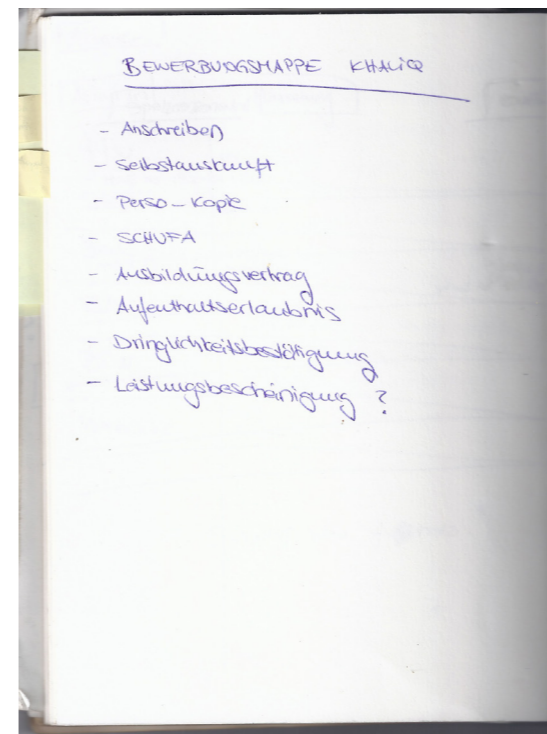 BEWERBUNGSMAPPE KHALIQ
- Anschreiben
- Selbstauskunft
- Perso-Kopie
- SCHUFA
- Ausbildungsvertrag
- Aufenthaltserlaubnis
- Dringlichkeitsbestätigung
- Leistungsbescheinigung ?